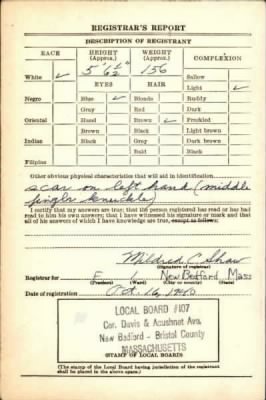 REGISTRAR'S REPORT
DESCRIPTION OF REGISTRANT
RACE HEIGHT (Approx.) WEIGHT (Approx.) COMPLEXION
5' 6½" 156
White ✓ EYES HAIR Sallow
Light ✓
Negro Blue ✓ Blonde Ruddy
Gray Red Dark
Oriental Hazel Brown ✓ Freckled
Brown Black Light brown
Indian Black Gray Dark brown
Bald Black
Filipino
Other obvious physical characteristics that will aid in identification
scar on left hand (middle
finger knuckle)
I certify that my answers are true; that the person registered has read or has had
read to him his own answers; that I have witnessed his signature or mark and that
all of his answers of which I have knowledge are true, except as follows:
Mildred C. Shaw
(Signature of registrar)
Registrar for 1 New Bedford Mass
(Ward) (City or county) (State)
Date of registration Oct. 16, 1940
LOCAL BOARD #107
Cor. Davis & Acushnet Ave.
New Bedford - Bristol County
MASSACHUSETTS
(STAMP OF LOCAL BOARD)
(The stamp of the Local Board having jurisdiction of the registrant
shall be placed in the above space.)